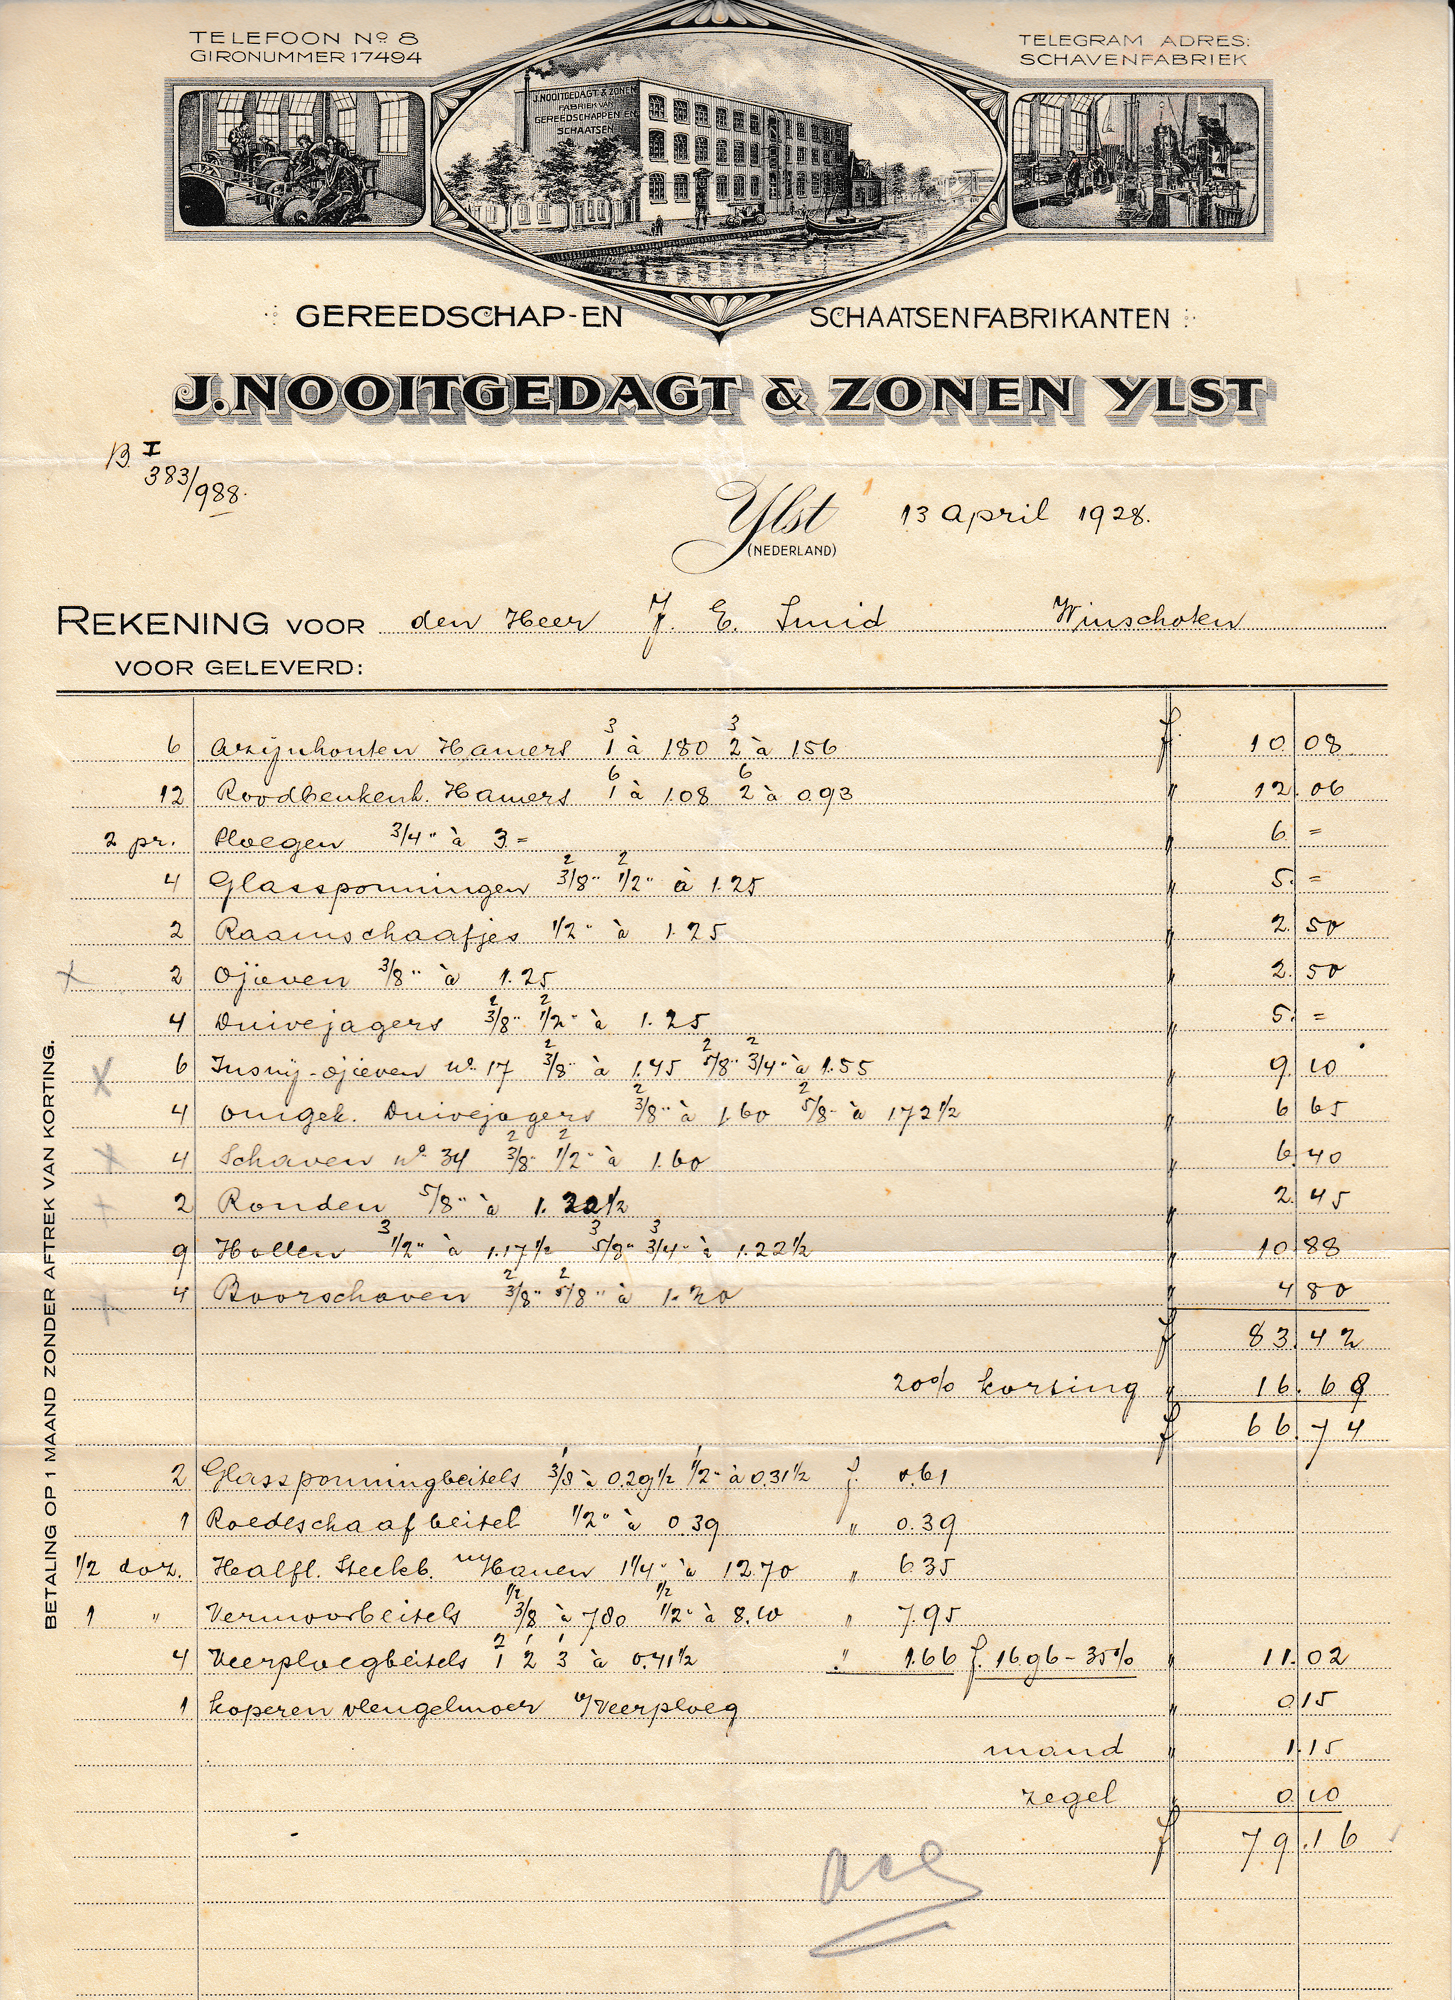 TELEFOON No 8
GIRONUMMER 17494
TELEGRAM ADRES:
SCHAVENFABRIEK
J.NOOITGEDAGT & ZONEN
FABRIEK VAN
GEREEDSCHAPPEN EN
SCHAATSEN
GEREEDSCHAP-EN SCHAATSENFABRIKANTEN
J. NOOITGEDAGT & ZONEN YLST
B I
383/988.
Ylst 13 april 1928.
(NEDERLAND)
REKENING VOOR den Heer J. E. Smid Winschoten
VOOR GELEVERD:
3 3
6 azijnhouten Hamers 1 à 1.80 2 à 1.56 f 10.08
6 6
12 Roodbeukenh. Hamers 1 à 1.08 2 à 0.93 " 12.06
2 pr. Ploegen 3/4" à 3.= " 6.=
2 2
4 Glassponningen 3/8" 1/2" à 1.25 " 5.=
2 Raamschaafjes 1/2" à 1.25 " 2.50
x 2 Ojieven 3/8" à 1.25 " 2.50
2 2
4 Duivejagers 3/8" 1/2" à 1.25 " 5.=
2 2 2
x 6 Insnij-ojieven no. 17 3/8" à 1.45 5/8" 3/4" à 1.55 " 9.10
2 2
4 omgek. Duivejagers 3/8" à 1.60 5/8" à 1.72 1/2 " 6.65
2 2
x 4 Schaven no. 34 3/8" 1/2" à 1.60 " 6.40
x 2 Ronden 5/8" à 1.22 1/2 " 2.45
3 3 3
9 Hollen 1/2" à 1.17 1/2 5/8" 3/4" à 1.22 1/2 " 10.88
2 2
x 4 Boorschaven 3/8" 5/8" à 1.20 " 4.80
f 83.42
20% korting " 16.68
f 66.74
1 1
2 Glassponningbeitels 3/8 à 0.29 1/2 1/2" à 0.31 1/2 f. 0.61
1 Roedeschaafbeitel 1/2" à 0.39 " 0.39
1/2 doz. Halfl. Steekb. Hauen 1 1/4" à 12.70 " 6.35
1/2 1/2
1 " Vermoorbeitels 3/8 à 7.80 1/2" à 8.10 " 7.95
2 1 1
4 Veerploegbeitels 1 2 3 à 0.41 1/2 " 1.66 f. 16.96 - 35% " 11.02
1 koperen vleugelmoer v/Veerploeg " 0.15
mand " 1.15
zegel " 0.10
f 79.16
BETALING OP 1 MAAND ZONDER AFTREK VAN KORTING.